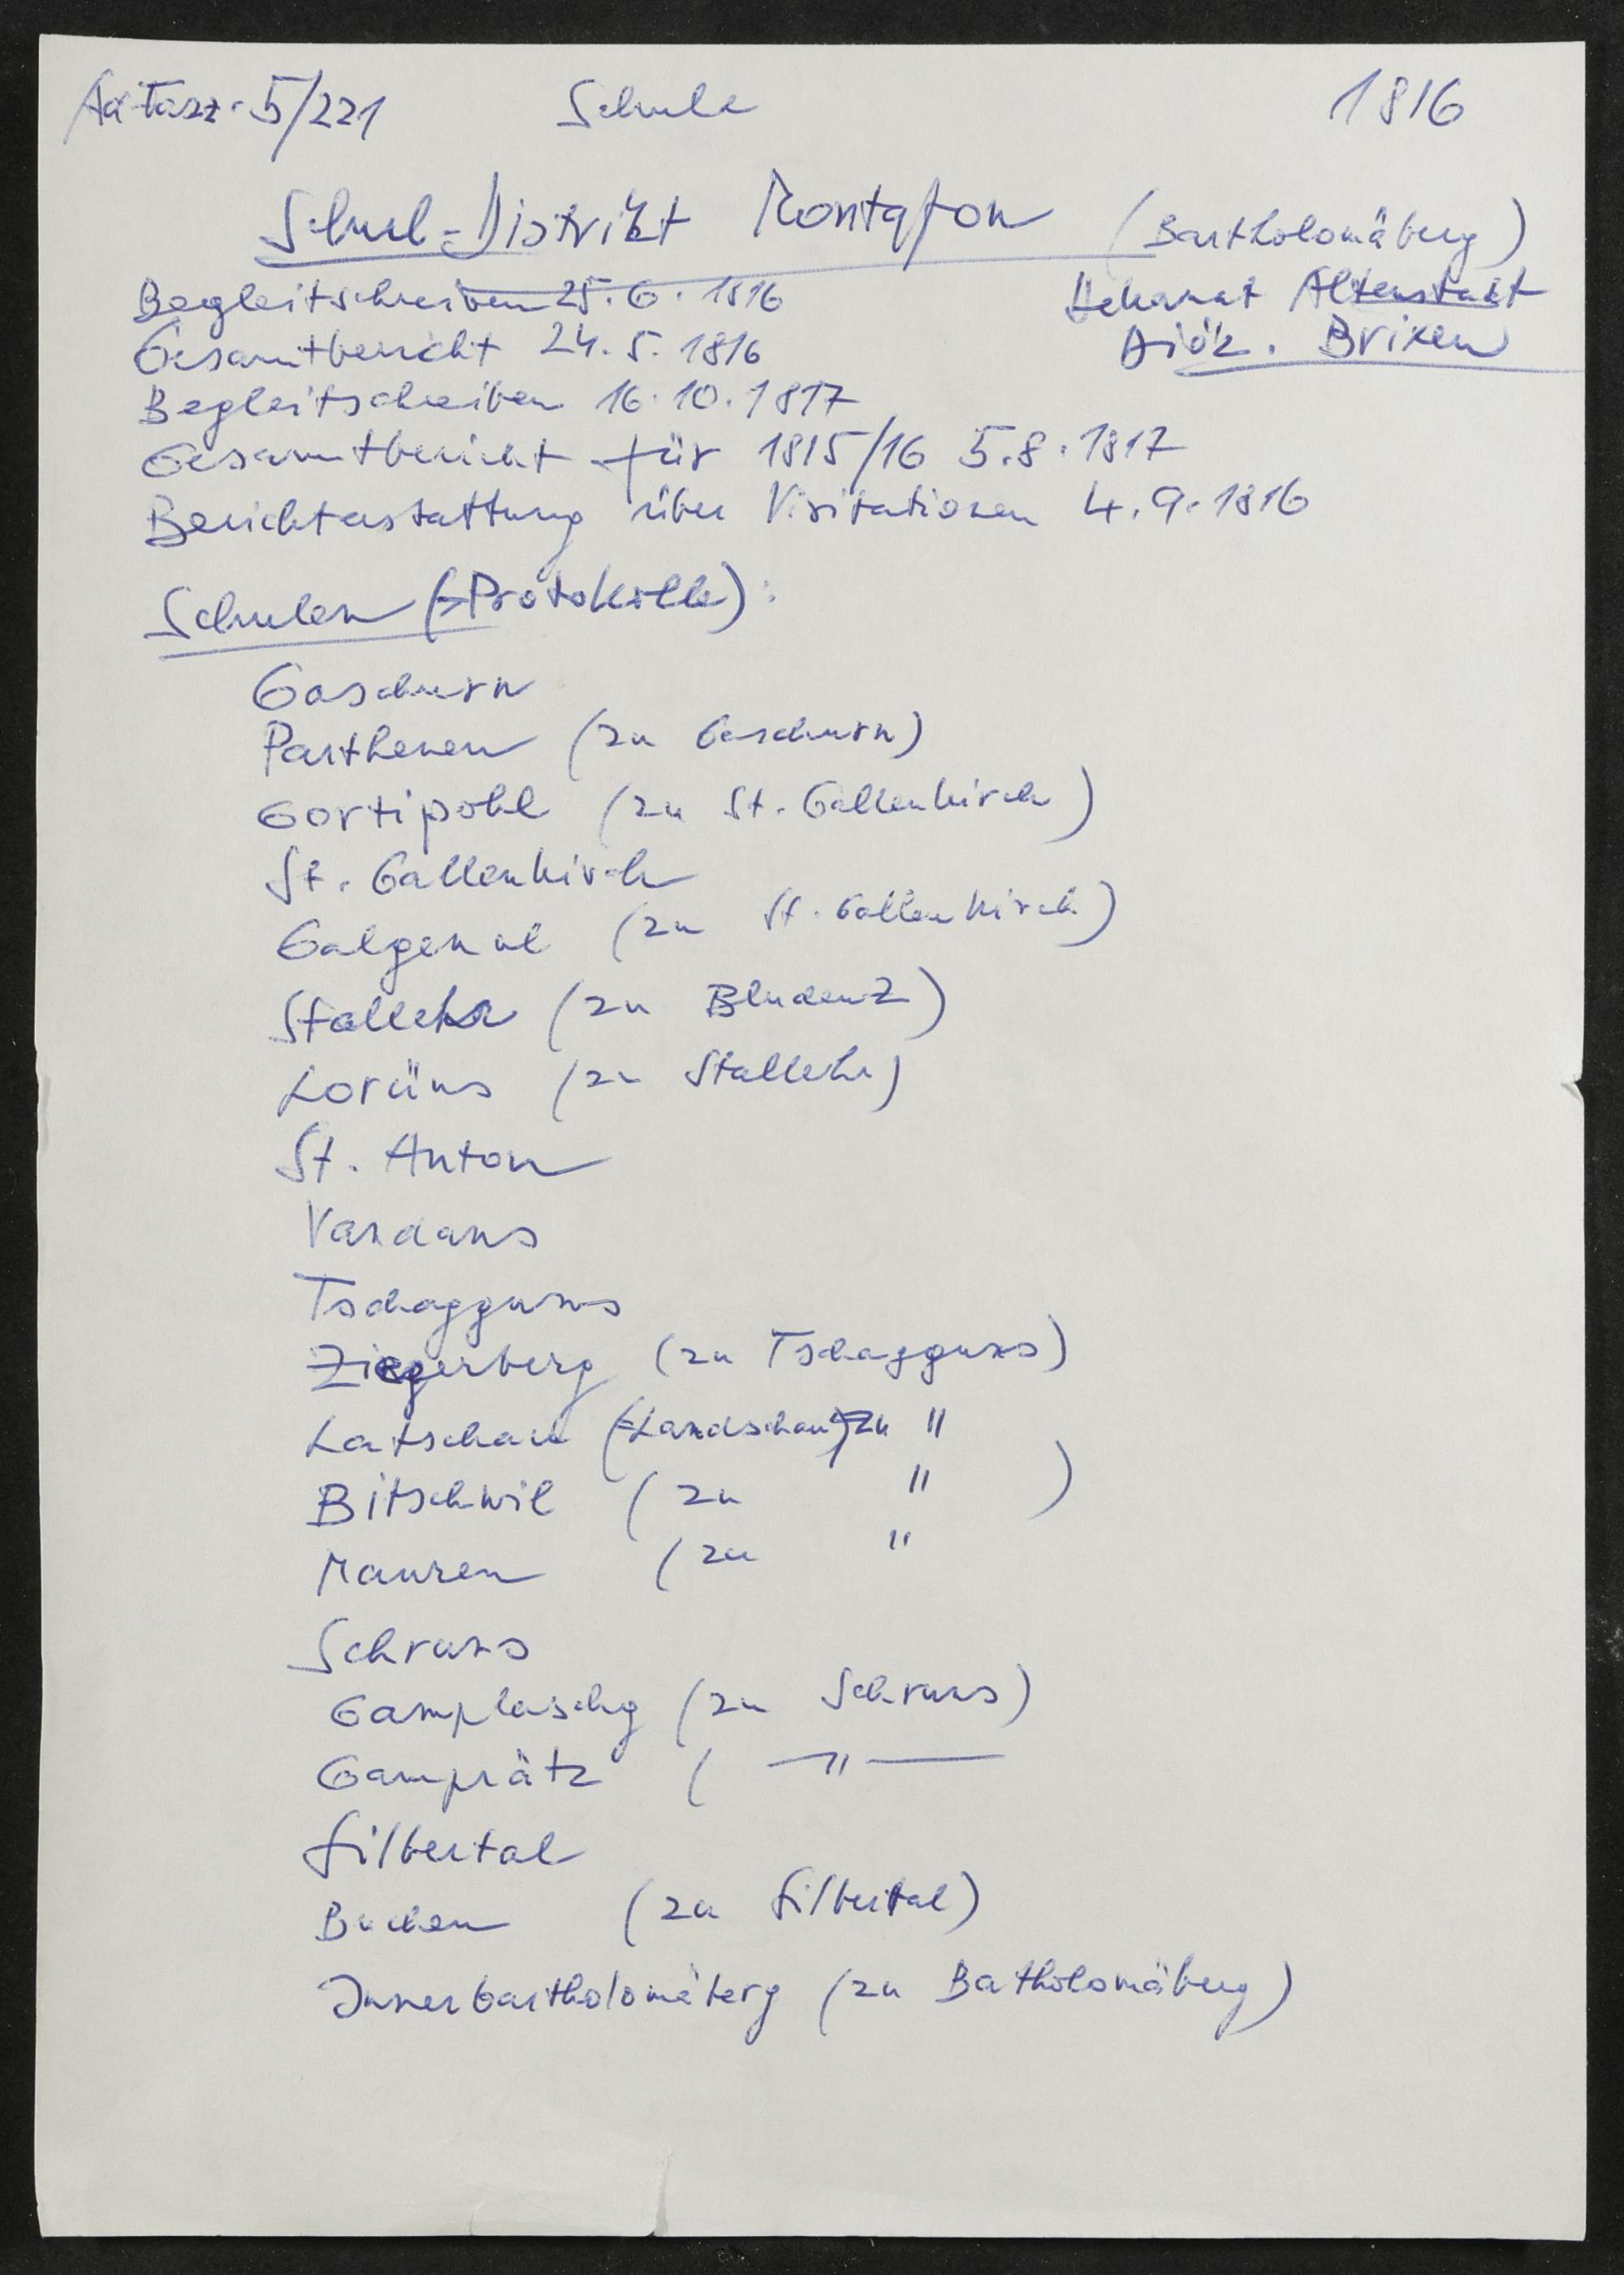 5/221 Schule 1816
Schul-Distrikt Montafon (Bartholomäberg)
Begleitschreiben 25.6.1816 Dekanat Altenstadt
Gesamtbericht 24.5.1816 Diöz. Brixen
Begleitschreiben 16.10.1817
Gesamtbericht für 1815/16 5.8.1817
Berichterstattung über Visitationen 4.9.1816
Schulen (→Protokolle):
Gaschurn
Parthenen (zu Gaschurn)
Gortipohl (zu St. Gallenkirch)
St. Gallenkirch
Galgenul (zu St. Gallenkirch)
Stallehr (zu Bludenz)
Lorüns (zu Stallehr)
St. Anton
Vandans
Tschagguns
Ziegerberg (zu Tschagguns)
Latschau (=Landschau) zu "
Bitschwil (zu " )
Mauren (zu "
Schruns
Gamplaschg (zu Schruns)
Gamprätz ( —"—
Silbertal
Buchen (zu Silbertal)
Innerbartholomäberg (zu Batholomäberg)